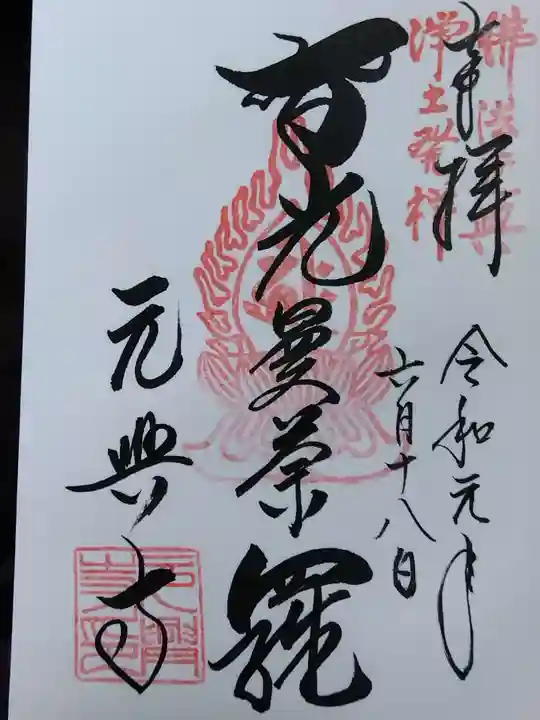 奉拝
佛法興
浄土発祥
令和元年
六月十八日
智光曼荼羅
元興寺